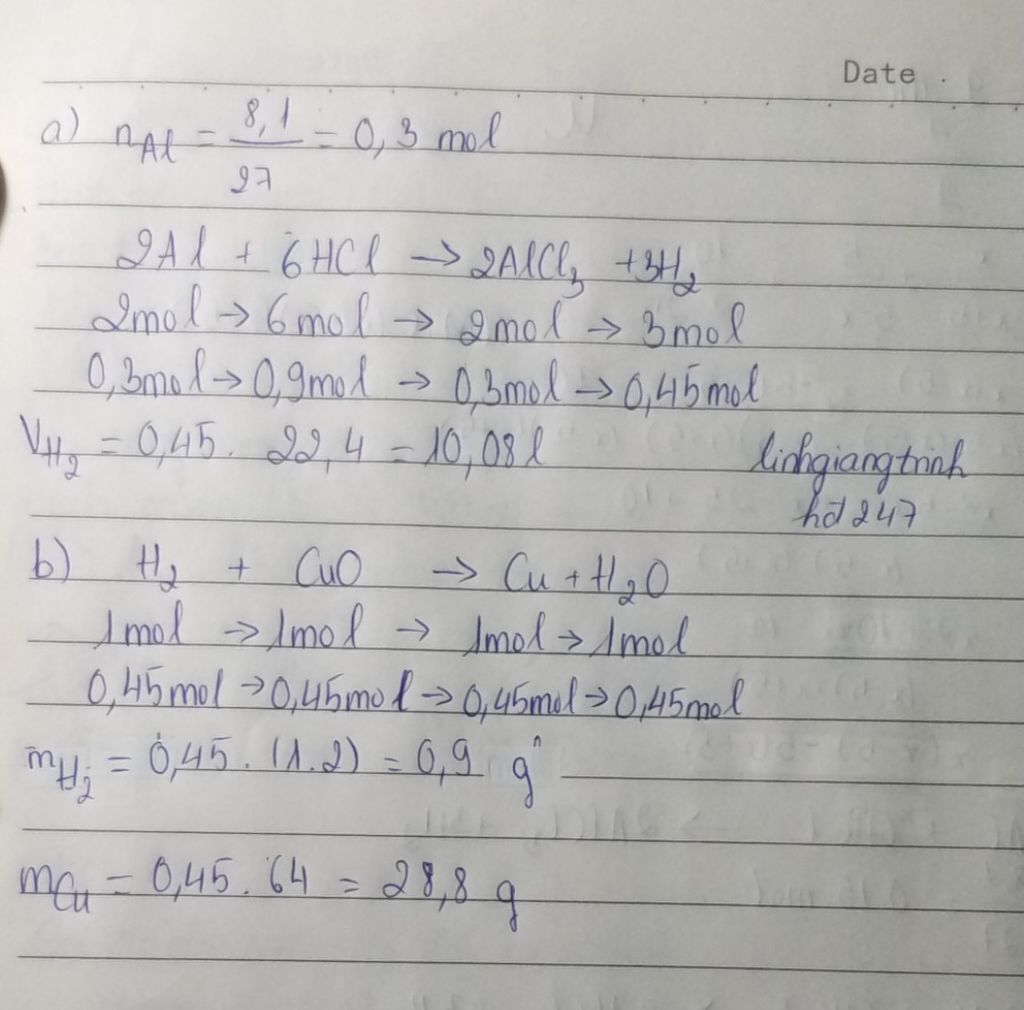 Date .
a) nAl = 8,1/27 = 0,3 mol
2Al + 6HCl → 2AlCl3 + 3H2
2mol → 6mol → 2mol → 3mol
0,3mol → 0,9mol → 0,3mol → 0,45mol
VH2 = 0,45. 22,4 = 10,08l
linhgiangtrinh
hd247
b) H2 + CuO → Cu + H2O
1mol → 1mol → 1mol → 1mol
0,45mol → 0,45mol → 0,45mol → 0,45mol
mH2 = 0,45. (1.2) = 0,9 g
mCu = 0,45. 64 = 28,8 g